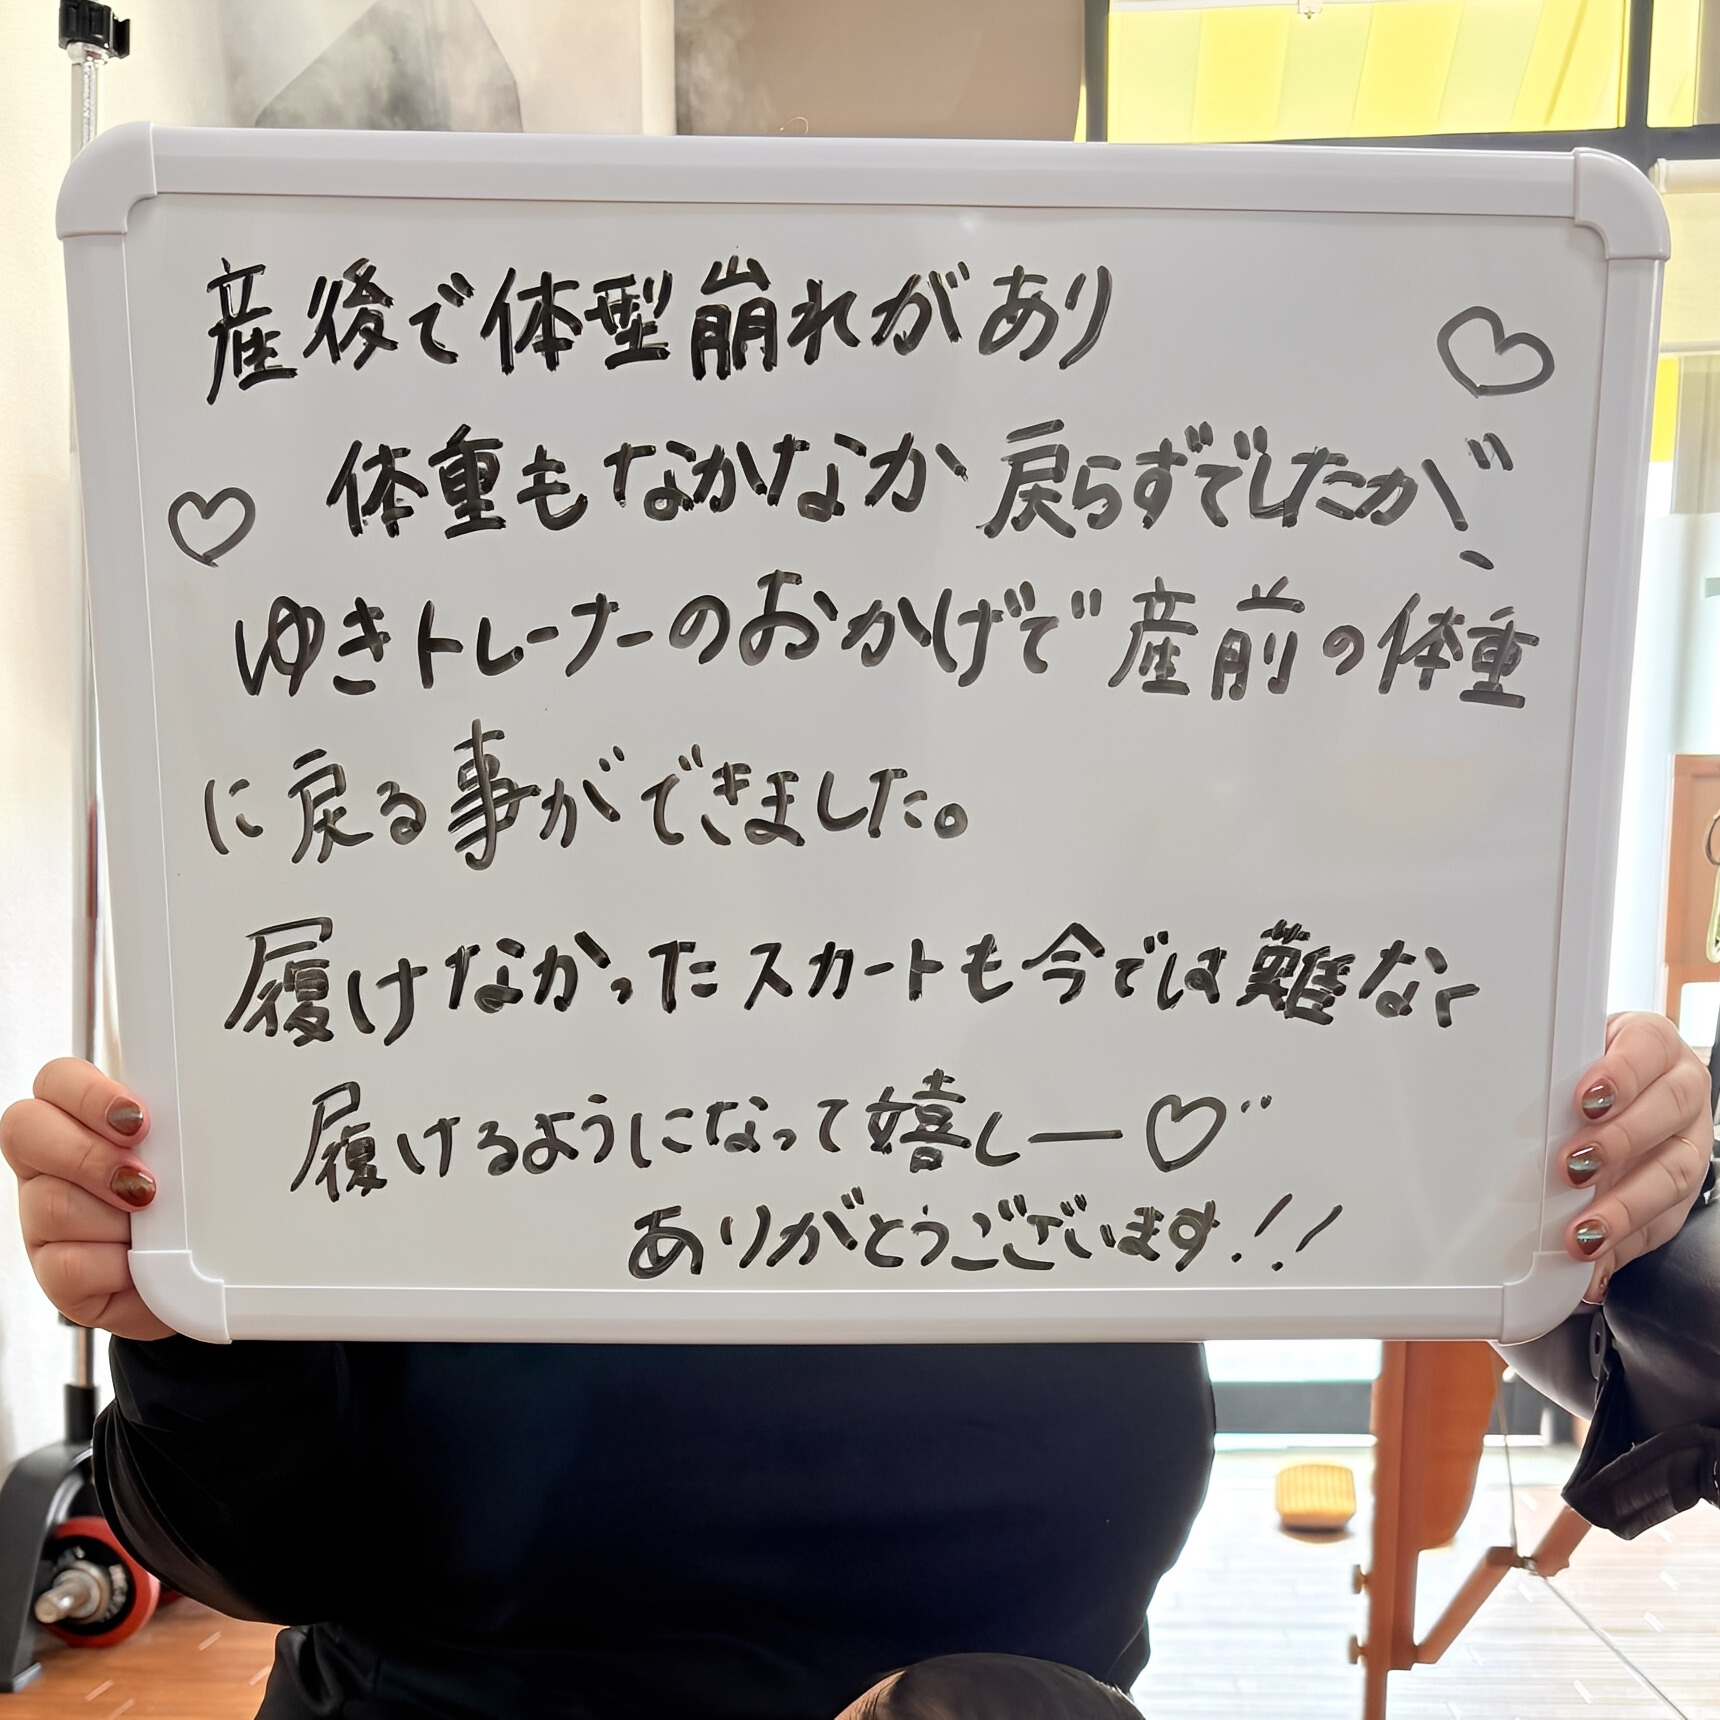 産後で体型崩れがあり
体重もなかなか戻らずでしたが、
ゆきトレーナーのおかげで産前の体重
に戻る事ができました。
履けなかったスカートも今では難なく
履けるようになって嬉しー♡
ありがとうございます!!